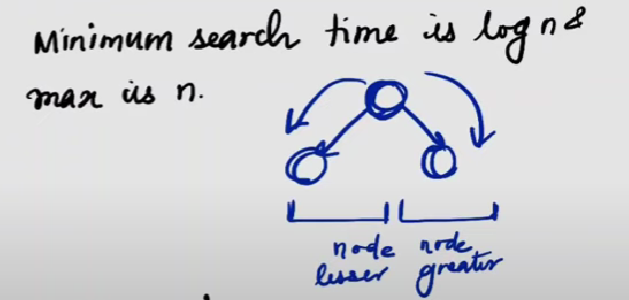 Minimum search time is log n &
max is n.
node node
lesser greater